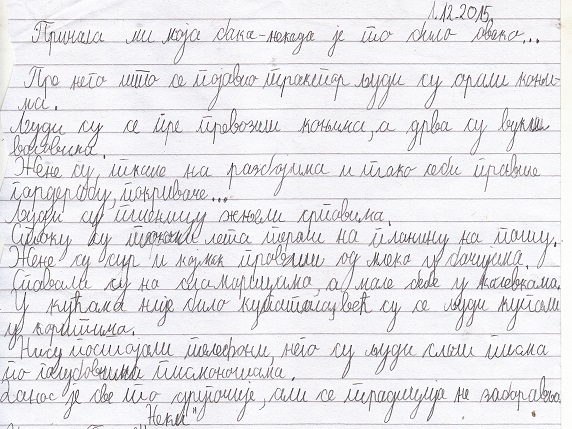 1.12.2015.
Причала ми моја бака-некада је то било овако...
Пре него што се појавио трактор људи су орали коњи-
ма.
Људи су се пре превозили коњима, а дрва су вукли
воловима.
Жене су ткале на разбојима и тако себи правиле
гардеробу, покриваче...
Људи су пшеницу жњели српавима.
Стоку су током лета терали на планину на пашу.
Жене су сир и кајмак правиле од млека у бачијама.
Спавали су на сламарицама, а мале бебе у колевкама.
У кућама није било купатила, већ су се људи купали
у коритима.
Нису постојали телефони, него су људи слали писма
по голубовима писмоношама.
Данас је све то другачије, али се традиција не заборавља.